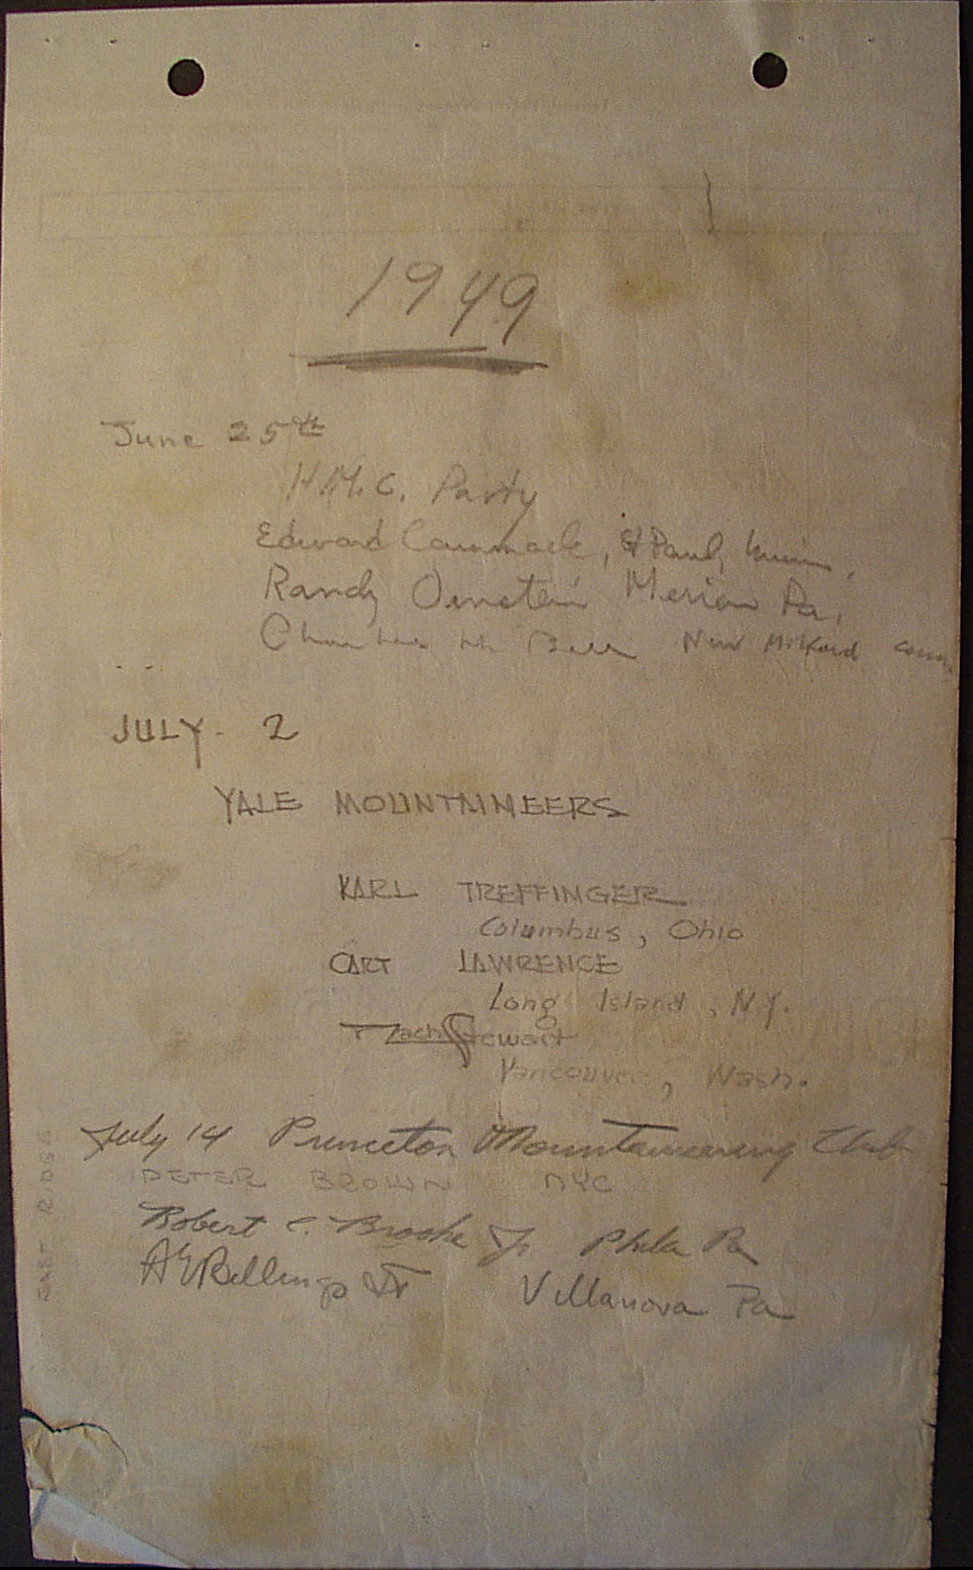 1949
June 25th
H.M.C. Party
Edward Cammack, St Paul, Minn.
Randy Ornstein Merion Pa.
Charles H. Bell New Milford Conn.
JULY - 2
YALE MOUNTAINEERS
KARL TREFFINGER
Columbus, Ohio
CART LAWRENCE
Long Island, N.Y.
Zach Stewart
Vancouver, Wash.
July 14 Princeton Mountaineering Club
PETER BROWN NYC
Robert C. Brooke Jr. Phila Pa
A E Billings Jr Villanova Pa